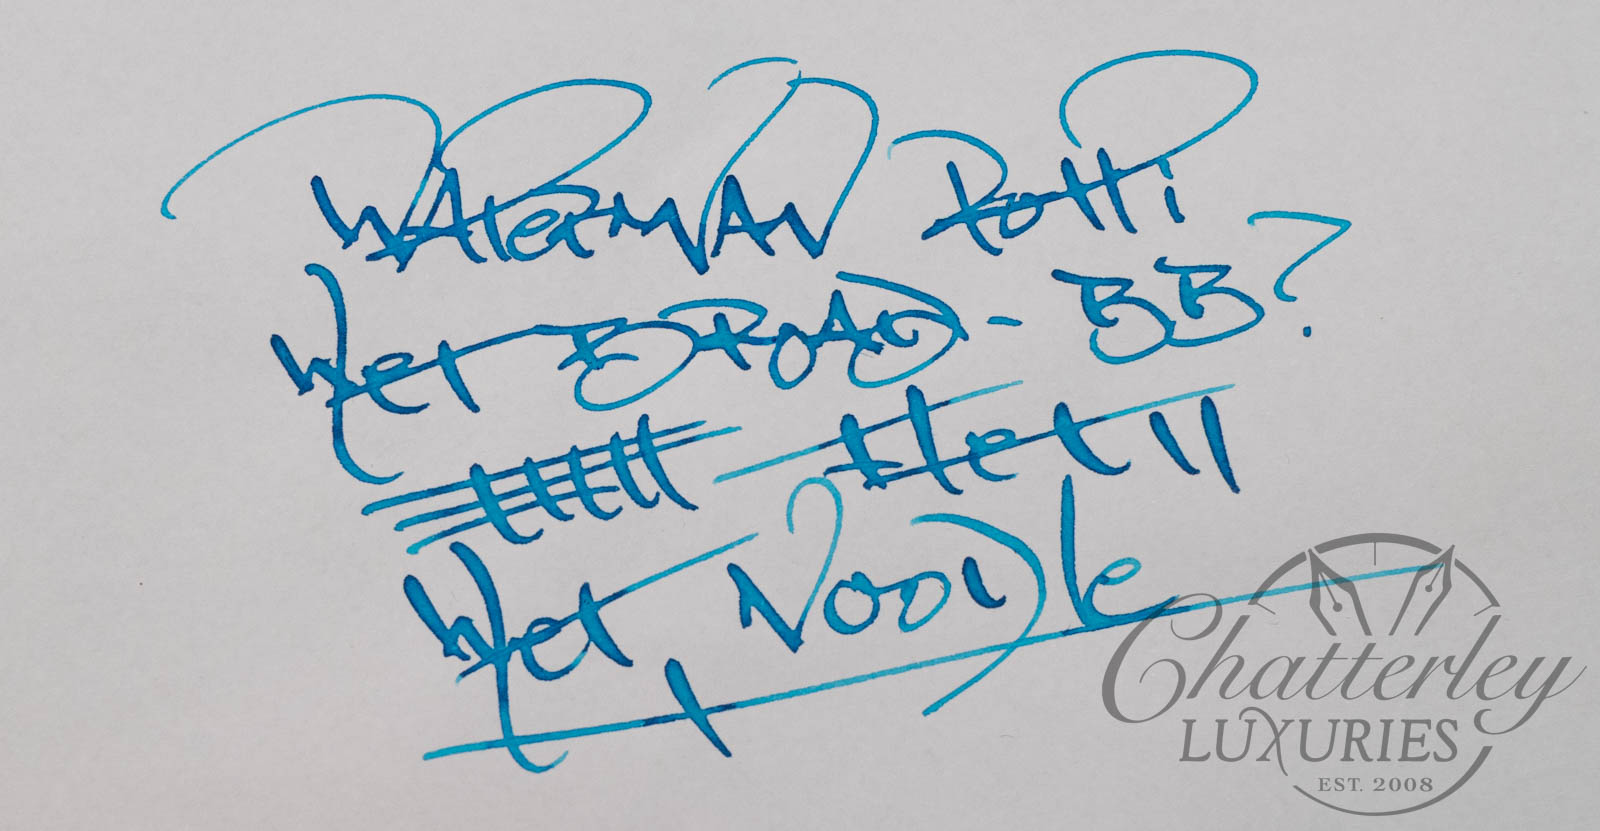 Waterman Patti
Wet Broad - BB?
Wet Noodle
Chatterley
LUXURIES
EST. 2008